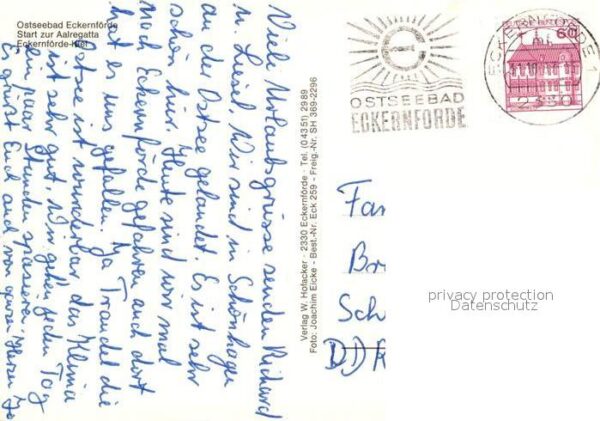 Ostseebad Eckernförde
Start zur Aalregatta
Eckernförde-Kiel
Viele Urlaubsgrüsse senden Richard
u. Liesel. Wir sind in Schönhagen
an der Ostsee gelandet. Es ist sehr
schön hier. Heute sind wir mal
nach Eckernförde gefahren auch dort
hat es uns gefallen. Ja Traudel die
Ostsee ist wunderbar das Klima
ist sehr gut. Wir gehen jeden Tag
ein paar Stunden spazieren.
Es grüsst Euch auch von ganzen Herzen
Verlag W. Hofacker · 2330 Eckernförde · Tel. (0 43 51) 2989
Foto: Joachim Eicke - Best.-Nr. Eck 259 - Freig.-Nr. SH 369-2296
OSTSEEBAD
ECKERNFÖRDE
ECKERNFÖRDE 1
2330
60
Fam
Br
Sch
DDR
privacy protection
Datenschutz